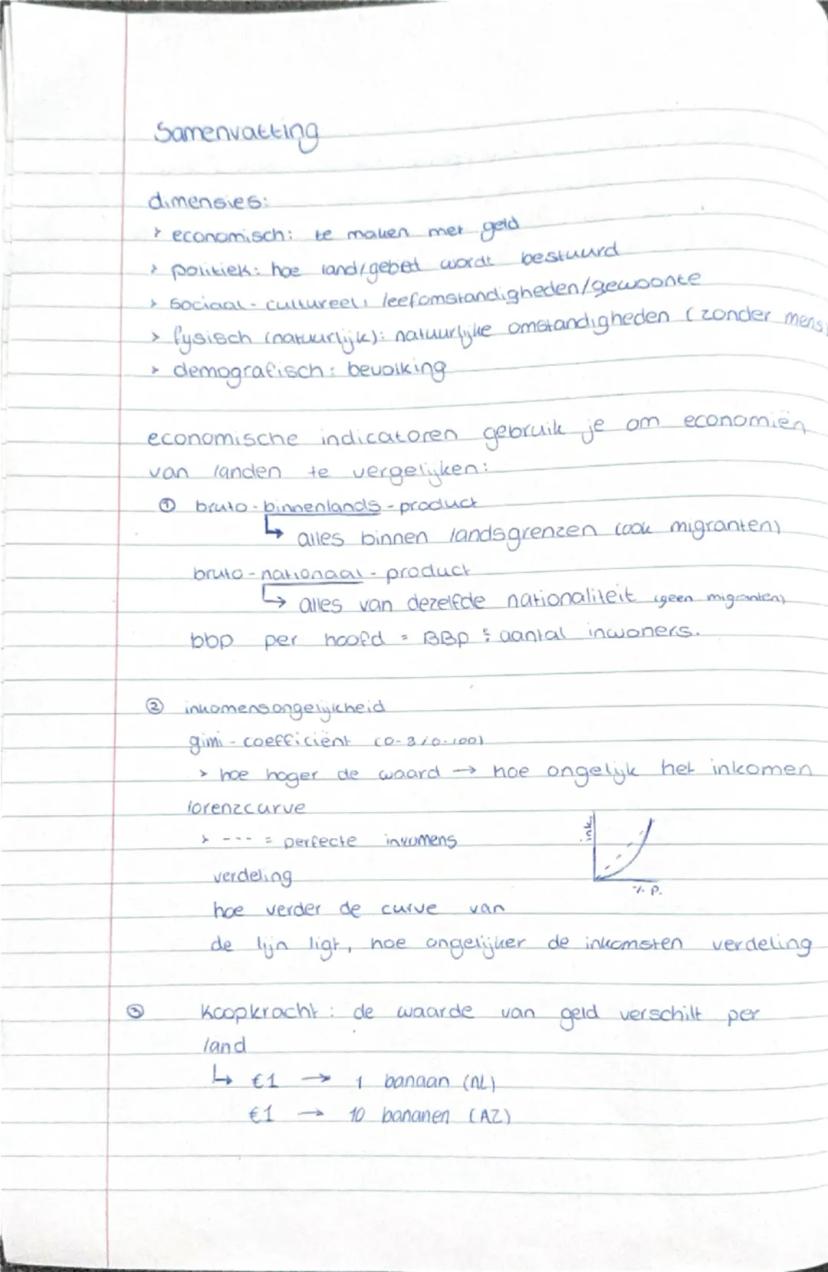 Samenvatting
dimensies:
> economisch: te maken met geld
> politiek: hoe land/gebied wordt bestuurd
> sociaal-cultureel: leefomstandigheden/gewoonte
> fysisch (natuurlijk): natuurlijke omstandigheden (zonder mens
> demografisch: bevolking
economische indicatoren gebruik je om economiën
van landen te vergelijken:
① bruto-binnenlands-product
↳ alles binnen landsgrenzen (ook migranten)
bruto-nationaal-product
↳ alles van dezelfde nationaliteit (geen migranten)
bbp per hoofd = BBp : aantal inwoners.
② inkomensongelijkheid
gimi-coefficiënt
> hoe hoger de waard → hoe ongelijk het inkomen
lorenzcurve
> --- = perfecte inkomens
verdeling
ink.
% P.
hoe verder de curve van
de lijn ligt, hoe ongelijker de inkomsten verdeling
③ Koopkracht: de waarde van geld verschilt per
land
↳ €1 → 1 banaan (NL)
€1 → 10 bananen (AZ)